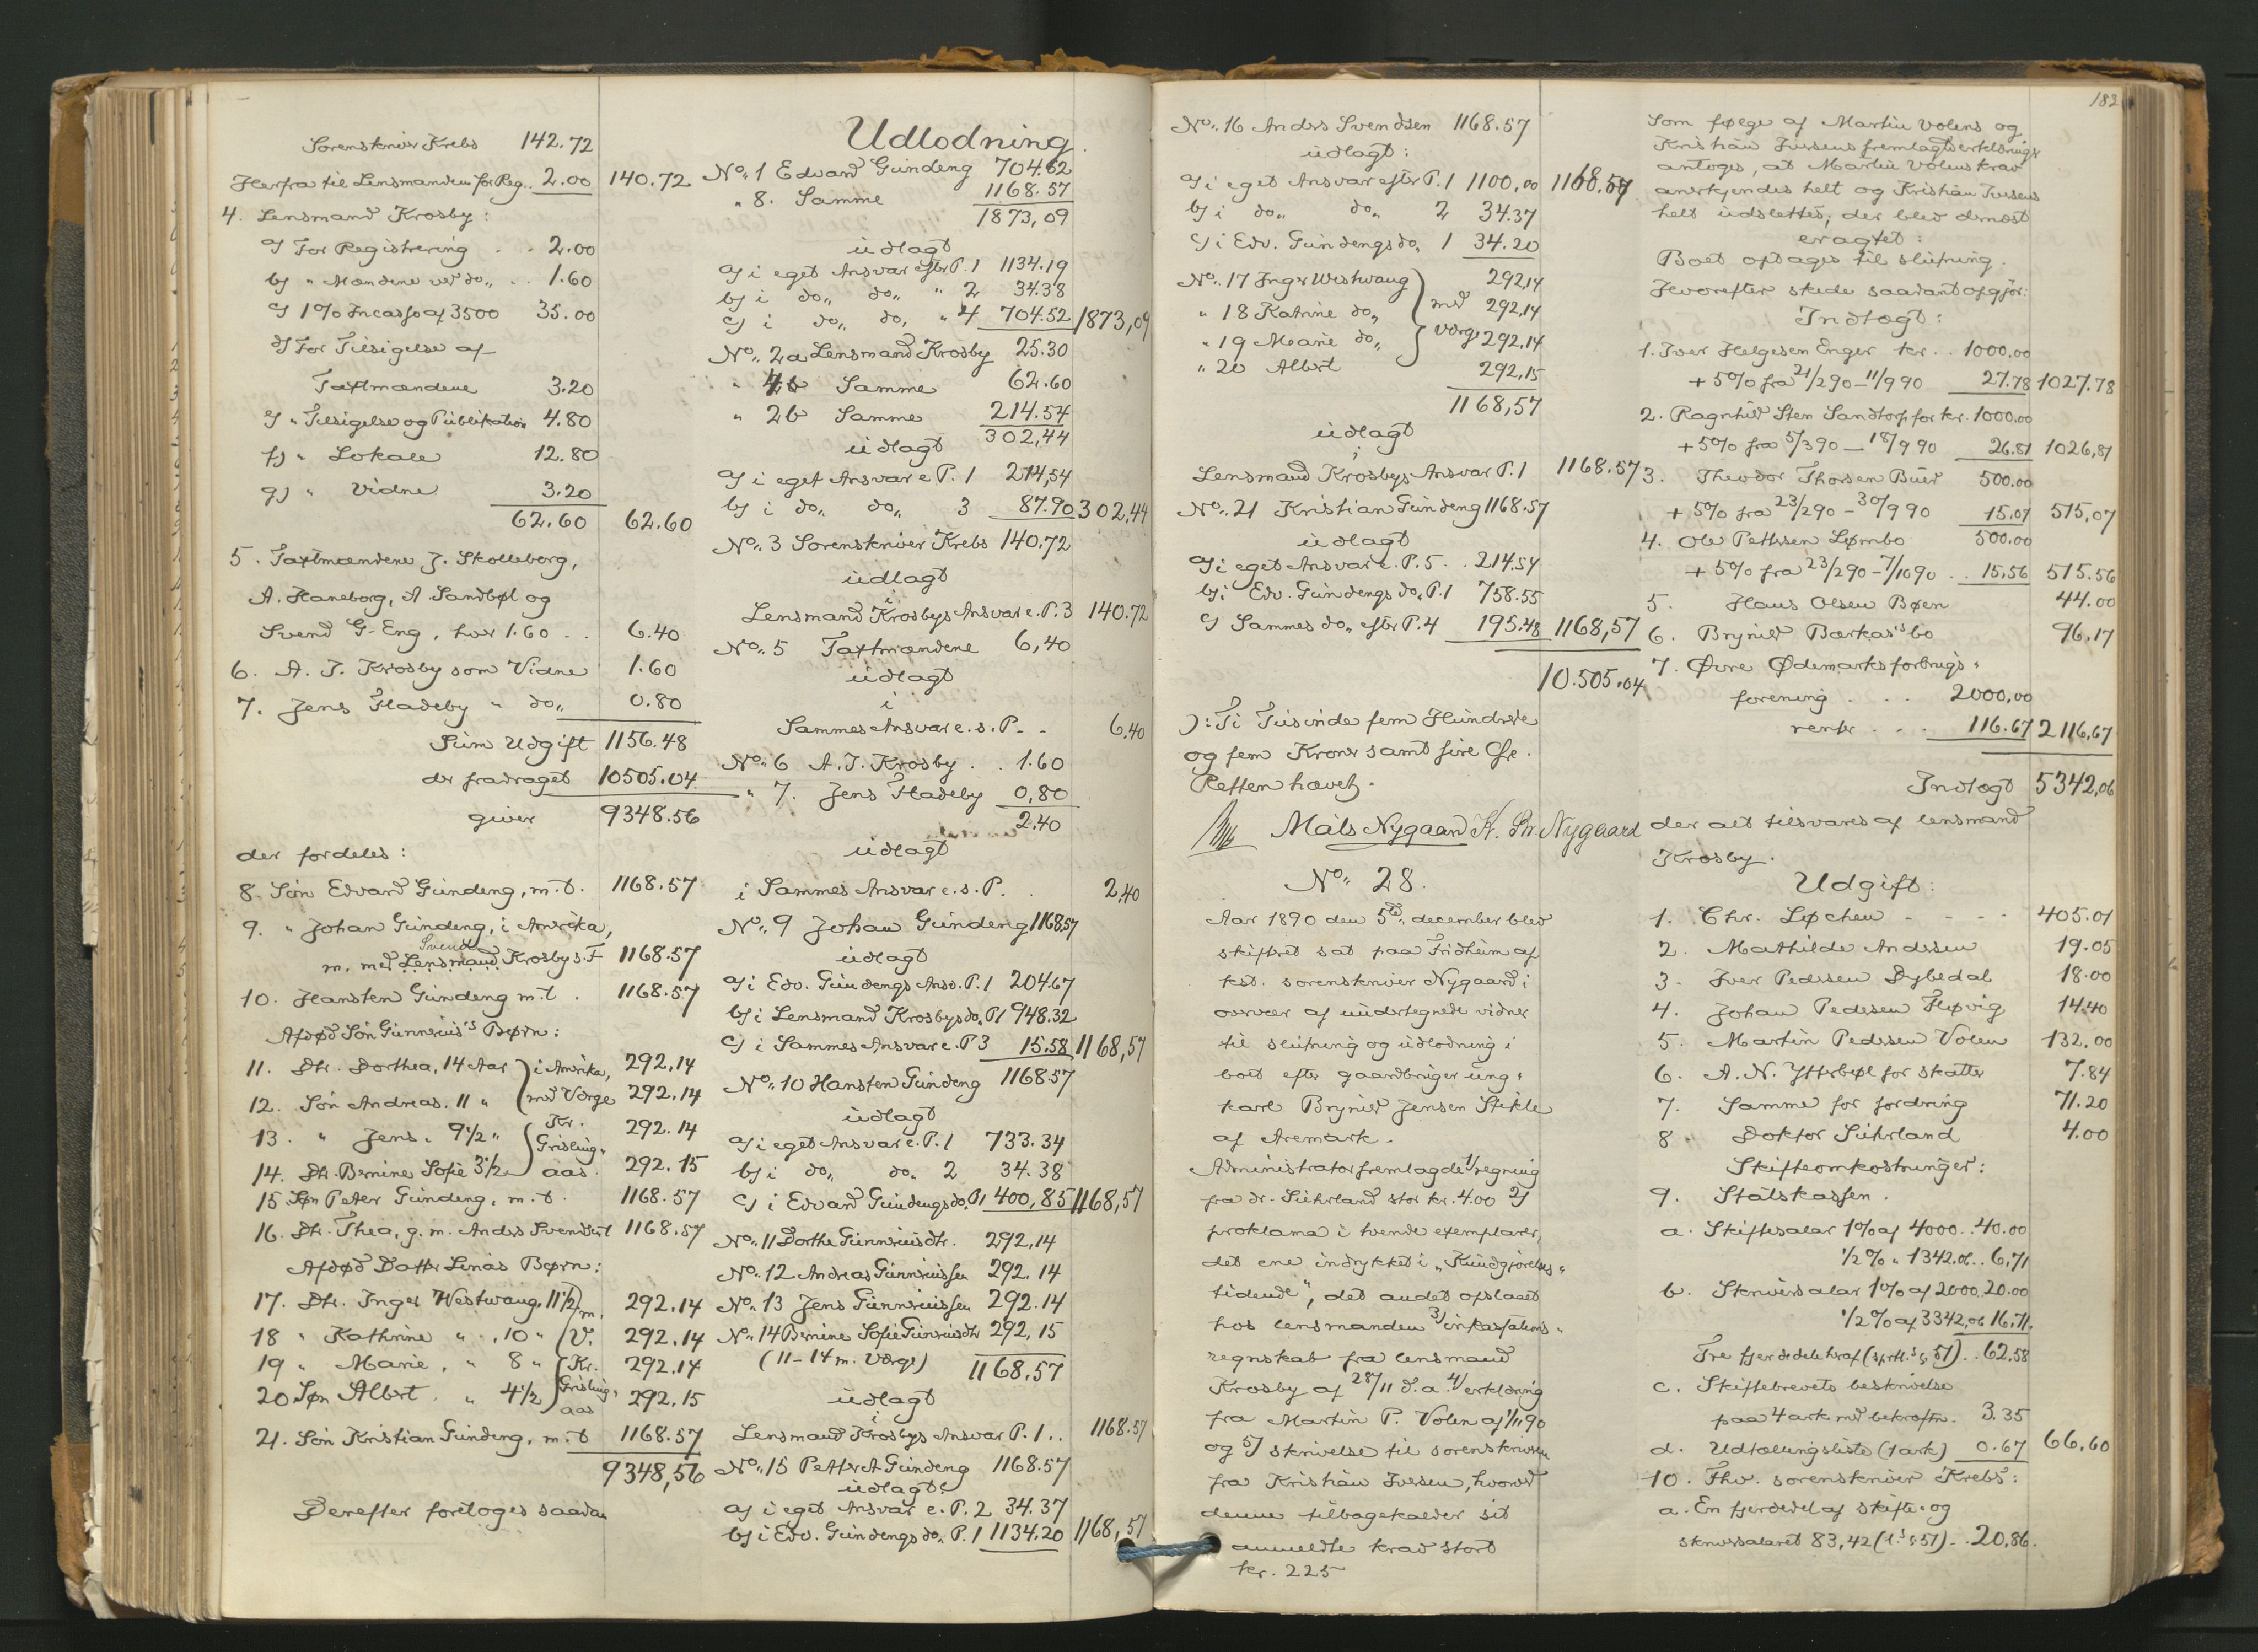 Sorenskriver Krebs 142.72
Herfra til Lensmanden for Reg.. 2.00 140.72
4. Lensmand Krosby:
a) For Registrering . . 2.00
b) " Mændene ved do,, . . 1.60
c) 1% Incasso af 3500 35.00
d) For Tilsigelse af
Taxtmændene 3.20
e) " Tilsigelse og Publikation 4.80
f) " Lokale 12.80
g) " Vidne 3.20
62.60 62.60
5. Taxtmændene J. Skolleborg,
A. Haneborg, A. Sandbøl og
Svend G. Eng, hver 1.60 . . 6.40
6. A. J. Krosby som Vidne 1.60
7. Jens Fladeby " do,, 0.80
Sum Udgift 1156.48
der fradraget 10505.04
giver 9348.56
der fordeles:
8. Søn Edvard Gundeng, m.t. 1168.57
9. " Johan Gundeng, i Amerika,
Svend
m. med Lensmand Krosby s. F 1168.57
10. Hansten Gundeng m.t. 1168.57
Afdød Søn Gunnerius's Børn:
11. Dtr. Dorthea, 14 Aar i Amerika, 292.14
12. Søn Andreas. 11 " med Værge 292.14
13. " Jens. 9 1/2 " Kr. Grisling- 292.14
14. Dtr. Bernine Sofie 3 1/2 aas. 292.15
15. Søn Petter Gundeng, m.t. 1168.57
16. Dtr. Thea, g.m. Anders Svendsen 1168.57
Afdød Datter Linas Børn:
17. Dtr. Inger Westwang, 11 1/2 m. 292.14
18 " Kathrine " , 10 " V. 292.14
19 " Marie, " 8 " Kr. 292.14
20 Søn Albert. " 4 1/2 Grisling- aas 292.15
21. Søn Kristian Gundeng, m.t 1168.57
9348,56
Derefter foretoges saadan
Udlodning.
No. 1 Edvard Gundeng 704.52
" 8. Samme 1168.57
1873,09
udlagt
a) i eget Ansvar efter P. 1 1134.19
b) i do,, do,, " 2 34.38
c) i do,, do, " 4 704.52 1873,09
No. 2a Lensmand Krosby 25.30
" 4 Samme 62.60
" 2b Samme 214.54
302,44
udlagt
a) i eget Ansvar e P. 1 214,54
b) i do,, do,, 3 87.90 302,44
No. 3 Sorenskriver Krebs 140.72
udlagt
i
Lensmand Krosbys Ansvar e. P. 3 140.72
No. 5 Taxtmændene 6,40
udlagt
i
Sammes Ansvar e. s. P. . 6,40
No. 6 A. J. Krosby . . 1.60
" 7. Jens Fladeby 0,80
2.40
udlagt
i Sammes Ansvar e. s. P. . 2,40
No. 9 Johan Gundeng 1168,57
udlagt
a) i Edv. Gundengs Ansv. P. 1 204.67
b) i Lensmand Krosbys do,, P1 948.32
c) i Sammes Ansvar e. P 3 15.58 1168,57
No. 10 Hansten Gundeng 1168.57
udlagt
a) i eget Ansvar e. P. 1 733.34
b) i do,, do,, 2 34.38
c) i Edvard Gundengs do, P1 400,85 1168,57
No. 11 Dorthe Gunneriusdtr. 292,14
No. 12 Andreas Gunneriussen 292.14
No. 13 Jens Gunneriussen 292.14
No. 14 Bernine Sofie Gunneriusdtr 292,15
(11-14 m. Værge) 1168,57
udlagt
i
Lensmand Krosbys Ansvar P. 1.. 1168.57
No. 15 Petter A Gundeng 1168.57
udlagt:
a) i eget Ansvar e. P. 2 34.37
b) i Edv. Gundengs do,, P. 1 1134.20 1168,57
No. 16 Anders Svendsen 1168.57
udlagt:
a) i eget Ansvar efter P. 1 1100,00 1168.57
b) i do,, do,, 2 34.37
c) i Edv. Gundengs do, 1 34.20
No. 17 Inger Westwang 292,14
" 18 Katrine do,, med 292,14
" 19 Marie do,, Værge 292,14
" 20 Albert 292,15
1168,57
udlagt
i
Lensmand Krosbys Ansvar P. 1 1168.57
No. 21 Kristian Gundeng 1168.57
udlagt
a) i eget Ansvar e. P. 5 . . 214.54
b) i Edv. Gundengs do,, P. 1 758.55
c) Sammes do,, efter P. 4 195.48 1168,57
10.505,04
): Ti Tusinde fem Hundrede
og fem Kroner samt fire Øre.
Retten hævet.
Mäls Nygaard K. Nygaard
No. 28.
Aar 1890 den 5te december blev
skifteret sat paa Fridheim af
kst. sorenskriver Nygaard i
overvær af undertegnede vidner
til slutning og udlodning i
boet efter gaardbruger ung-
karl Brynild Jensen Stikle
af Aremark.
Administrator fremlagde 1/ regning
fra dr. Suhrland stor kr. 4.00 2/
proklama i tvende exemplarer,
det ene indrykket i „Kundgjørelses-
tidende", det andet opslaaet
hos lensmanden 3/ inkassations-
regnskab fra lensmand
Krosby af 28/11 d.a. 4/ erklæring
fra Martin P. Volen af 1/11 90
og 5/ skrivelse til sorenskriveren
fra Kristian Iversen, hvorved
denne tilbagekalder sit
anmeldte krav stort
kr. 225
182
Som følge af Martin Volens og
Kristian Iversens fremlagte erklæringer
antoges, at Martin Volens krav
anerkjendes helt og Kristian Iversens
helt udslettes; der blev dernæst
eragtet:
Boet optages til slutning.
Hvorefter skede saadant opgjør:
Indtægt:
1. Iver Helgesen Enger kr. . 1000,00
+ 5% fra 21/2 90 - 11/9 90 27.78 1027.78
2. Ragnhild Sten Sandtorp for kr. 1000,00
+ 5% fra 5/3 90 - 18/9 90 26.81 1026,81
3. Theodor Thorsen Buer 500.00
+ 5% fra 23/2 90 - 30/9 90 15.07 515,07
4. Ole Pettersen Lømbo 500.00
+ 5% fra 23/2 90 - 7/10 90 . . 15,56 515.56
5. Hans Olsen Bøen 44.00
6. Brynild Bærkas's bo 96,17
7. Øvre Ødemarks forbrugs-
forening . . . 2000,00
renter . . . 116.67 2116,67
Indtægt 5342,06
der alt tilsvares af lensmand
Krosby.
Udgift:
1. Chr. Løchen - - - - 405.01
2. Mathilde Andersen 19.05
3. Iver Pedersen Dybedal 18.00
4. Johan Pedersen Fløvig 14.40
5. Martin Pedersen Volen 132,00
6. A. N. Ytterbøl for skatter 7.84
7. Samme for fordring 71.20
8. Doktor Suhrland 4.00
Skifteomkostninger:
9. Statskassen.
a. Skiftesalar 1% af 4000 . . 40.00
1/2 % " 1342.06 . . 6,71
b. Skriversalar 1% af 2000 . 20.00
1/2 % af 3342,06 16,71.
Tre fjerdedele heraf (sprtl. § 51) . . 62,58
c. Skiftebrevets beskrivelse
paa 4 ark med bekræftn. 3.35
d. Udtællingsliste (1 ark) 0.67 66,60
10. Fhv. sorenskriver Krebs:
a. En fjerdedel af skifte- og
skriversalaret 83,42 (l. § 51) . . 20,86.